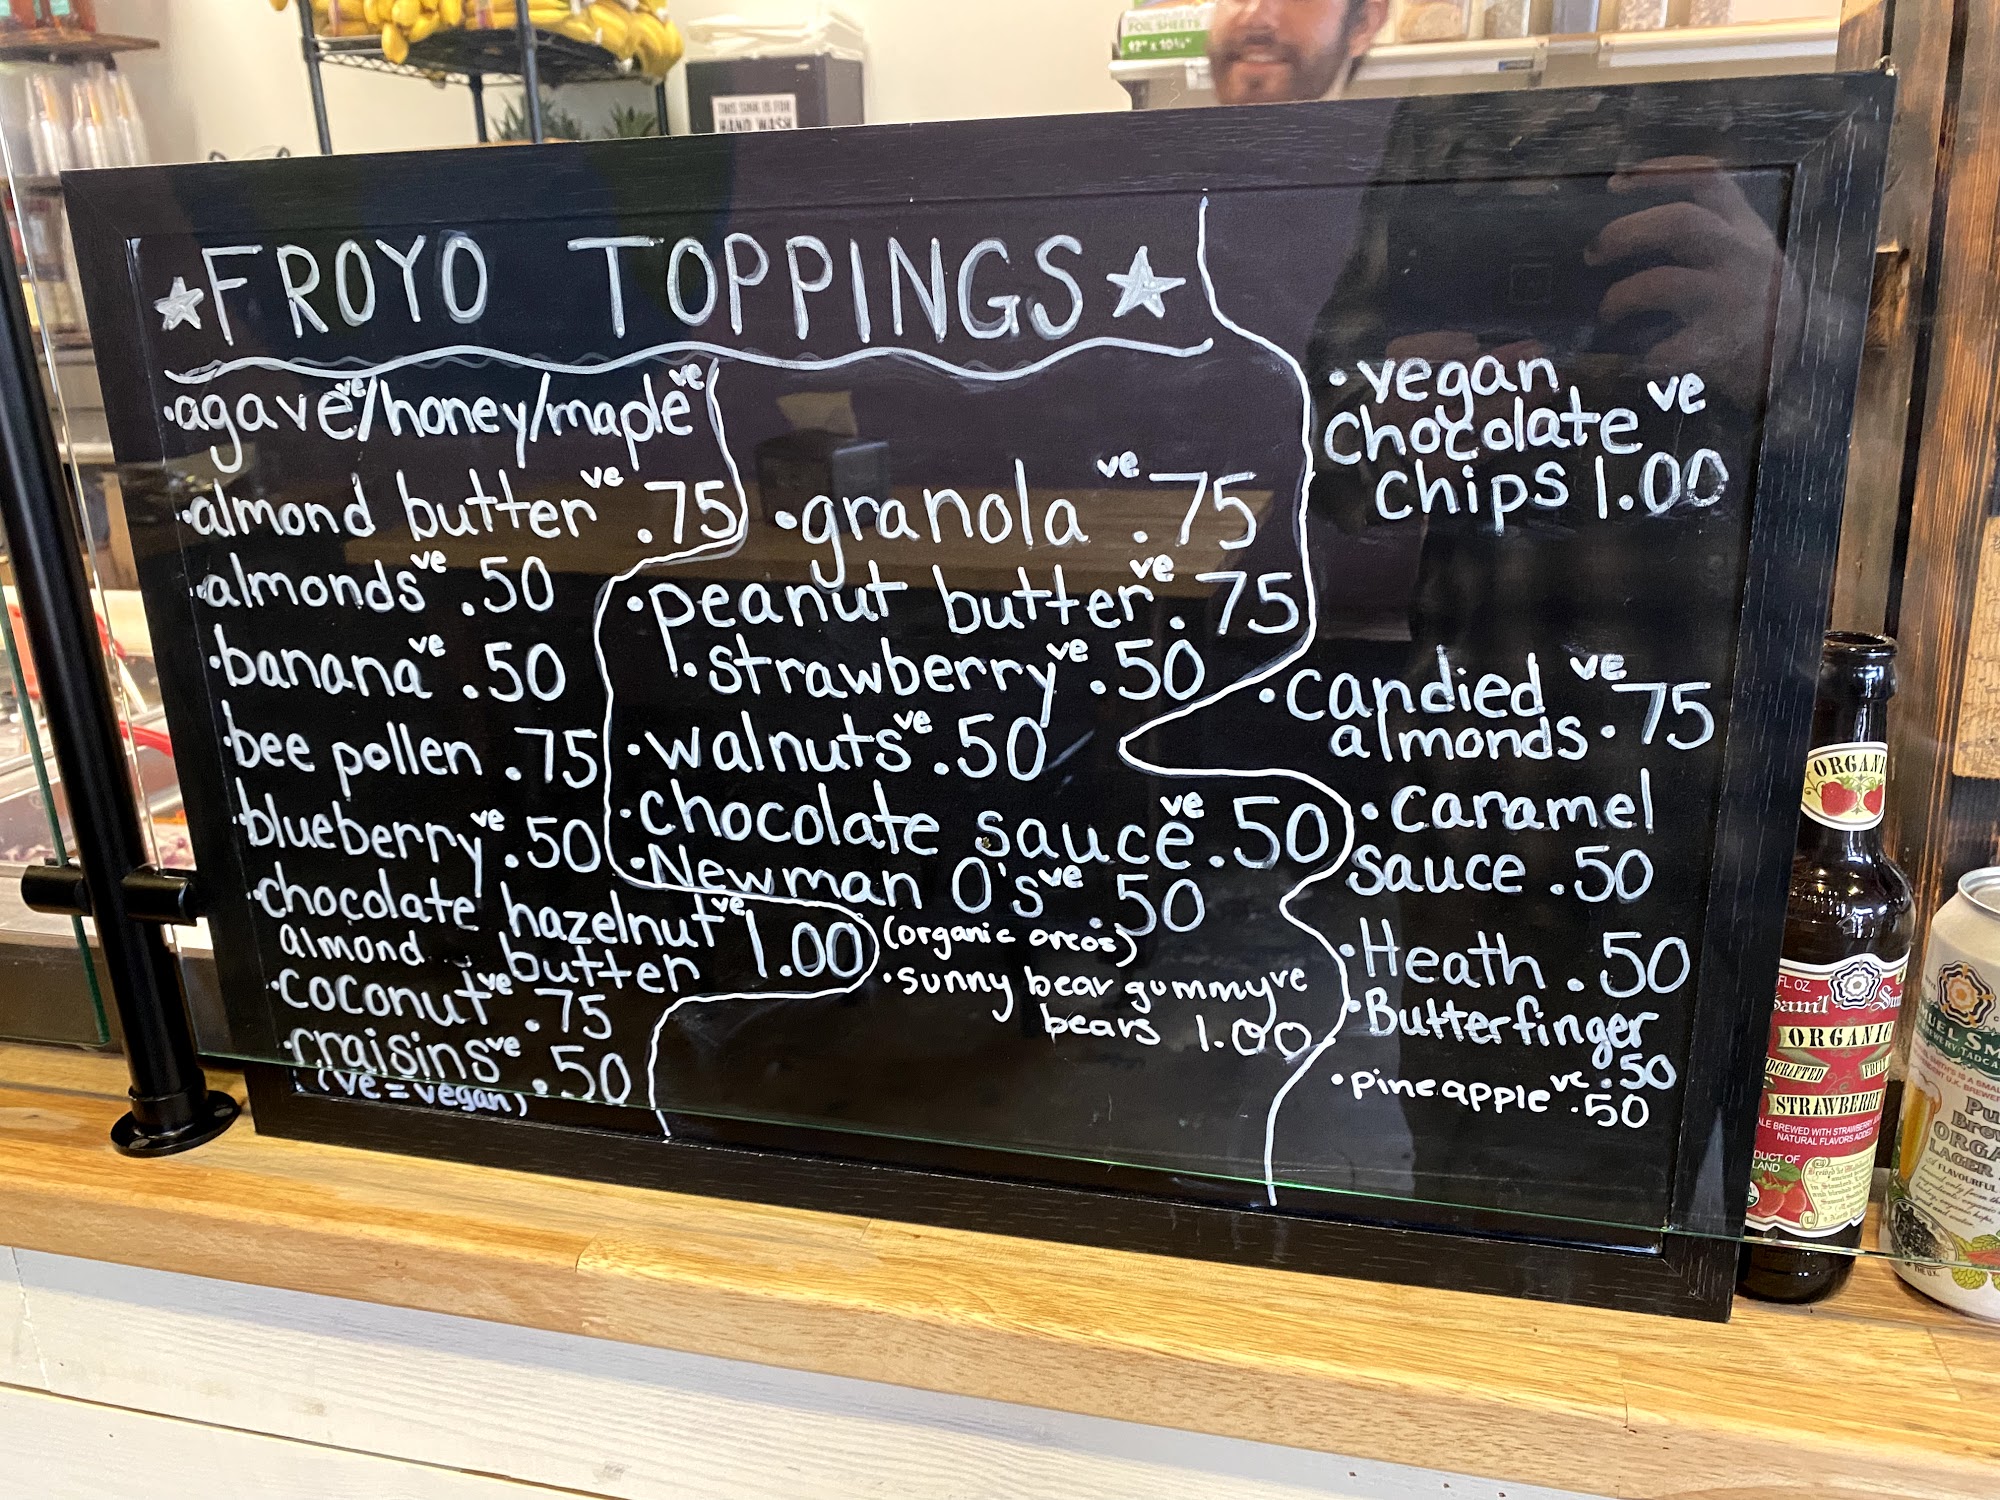 FROYO TOPPINGS
·agave ve/honey/maple ve
·almond butter ve .75
·almonds ve .50
·banana ve .50
·bee pollen .75
·blueberry ve .50
·chocolate hazelnut ve
almond butter 1.00
·coconut ve .75
·craisins ve .50
(ve = vegan)
·granola ve .75
·peanut butter ve .75
·strawberry ve .50
·walnuts ve .50
·chocolate sauce ve .50
·Newman O's ve .50
(organic oreos)
·sunny bear gummy ve
bears 1.00
·vegan
chocolate ve
chips 1.00
·candied ve
almonds .75
·caramel
sauce .50
·Heath .50
·Butterfinger
.50
·pineapple ve .50
THIS SINK IS FOR
HAND WASH
FOIL SHEETS
12" x 10¾"
ORGANI
FL. OZ.
Sam'l Smi
ORGANIC
STRAWBERRY
ALE BREWED WITH STRAWBERRY
NATURAL FLAVORS ADDED